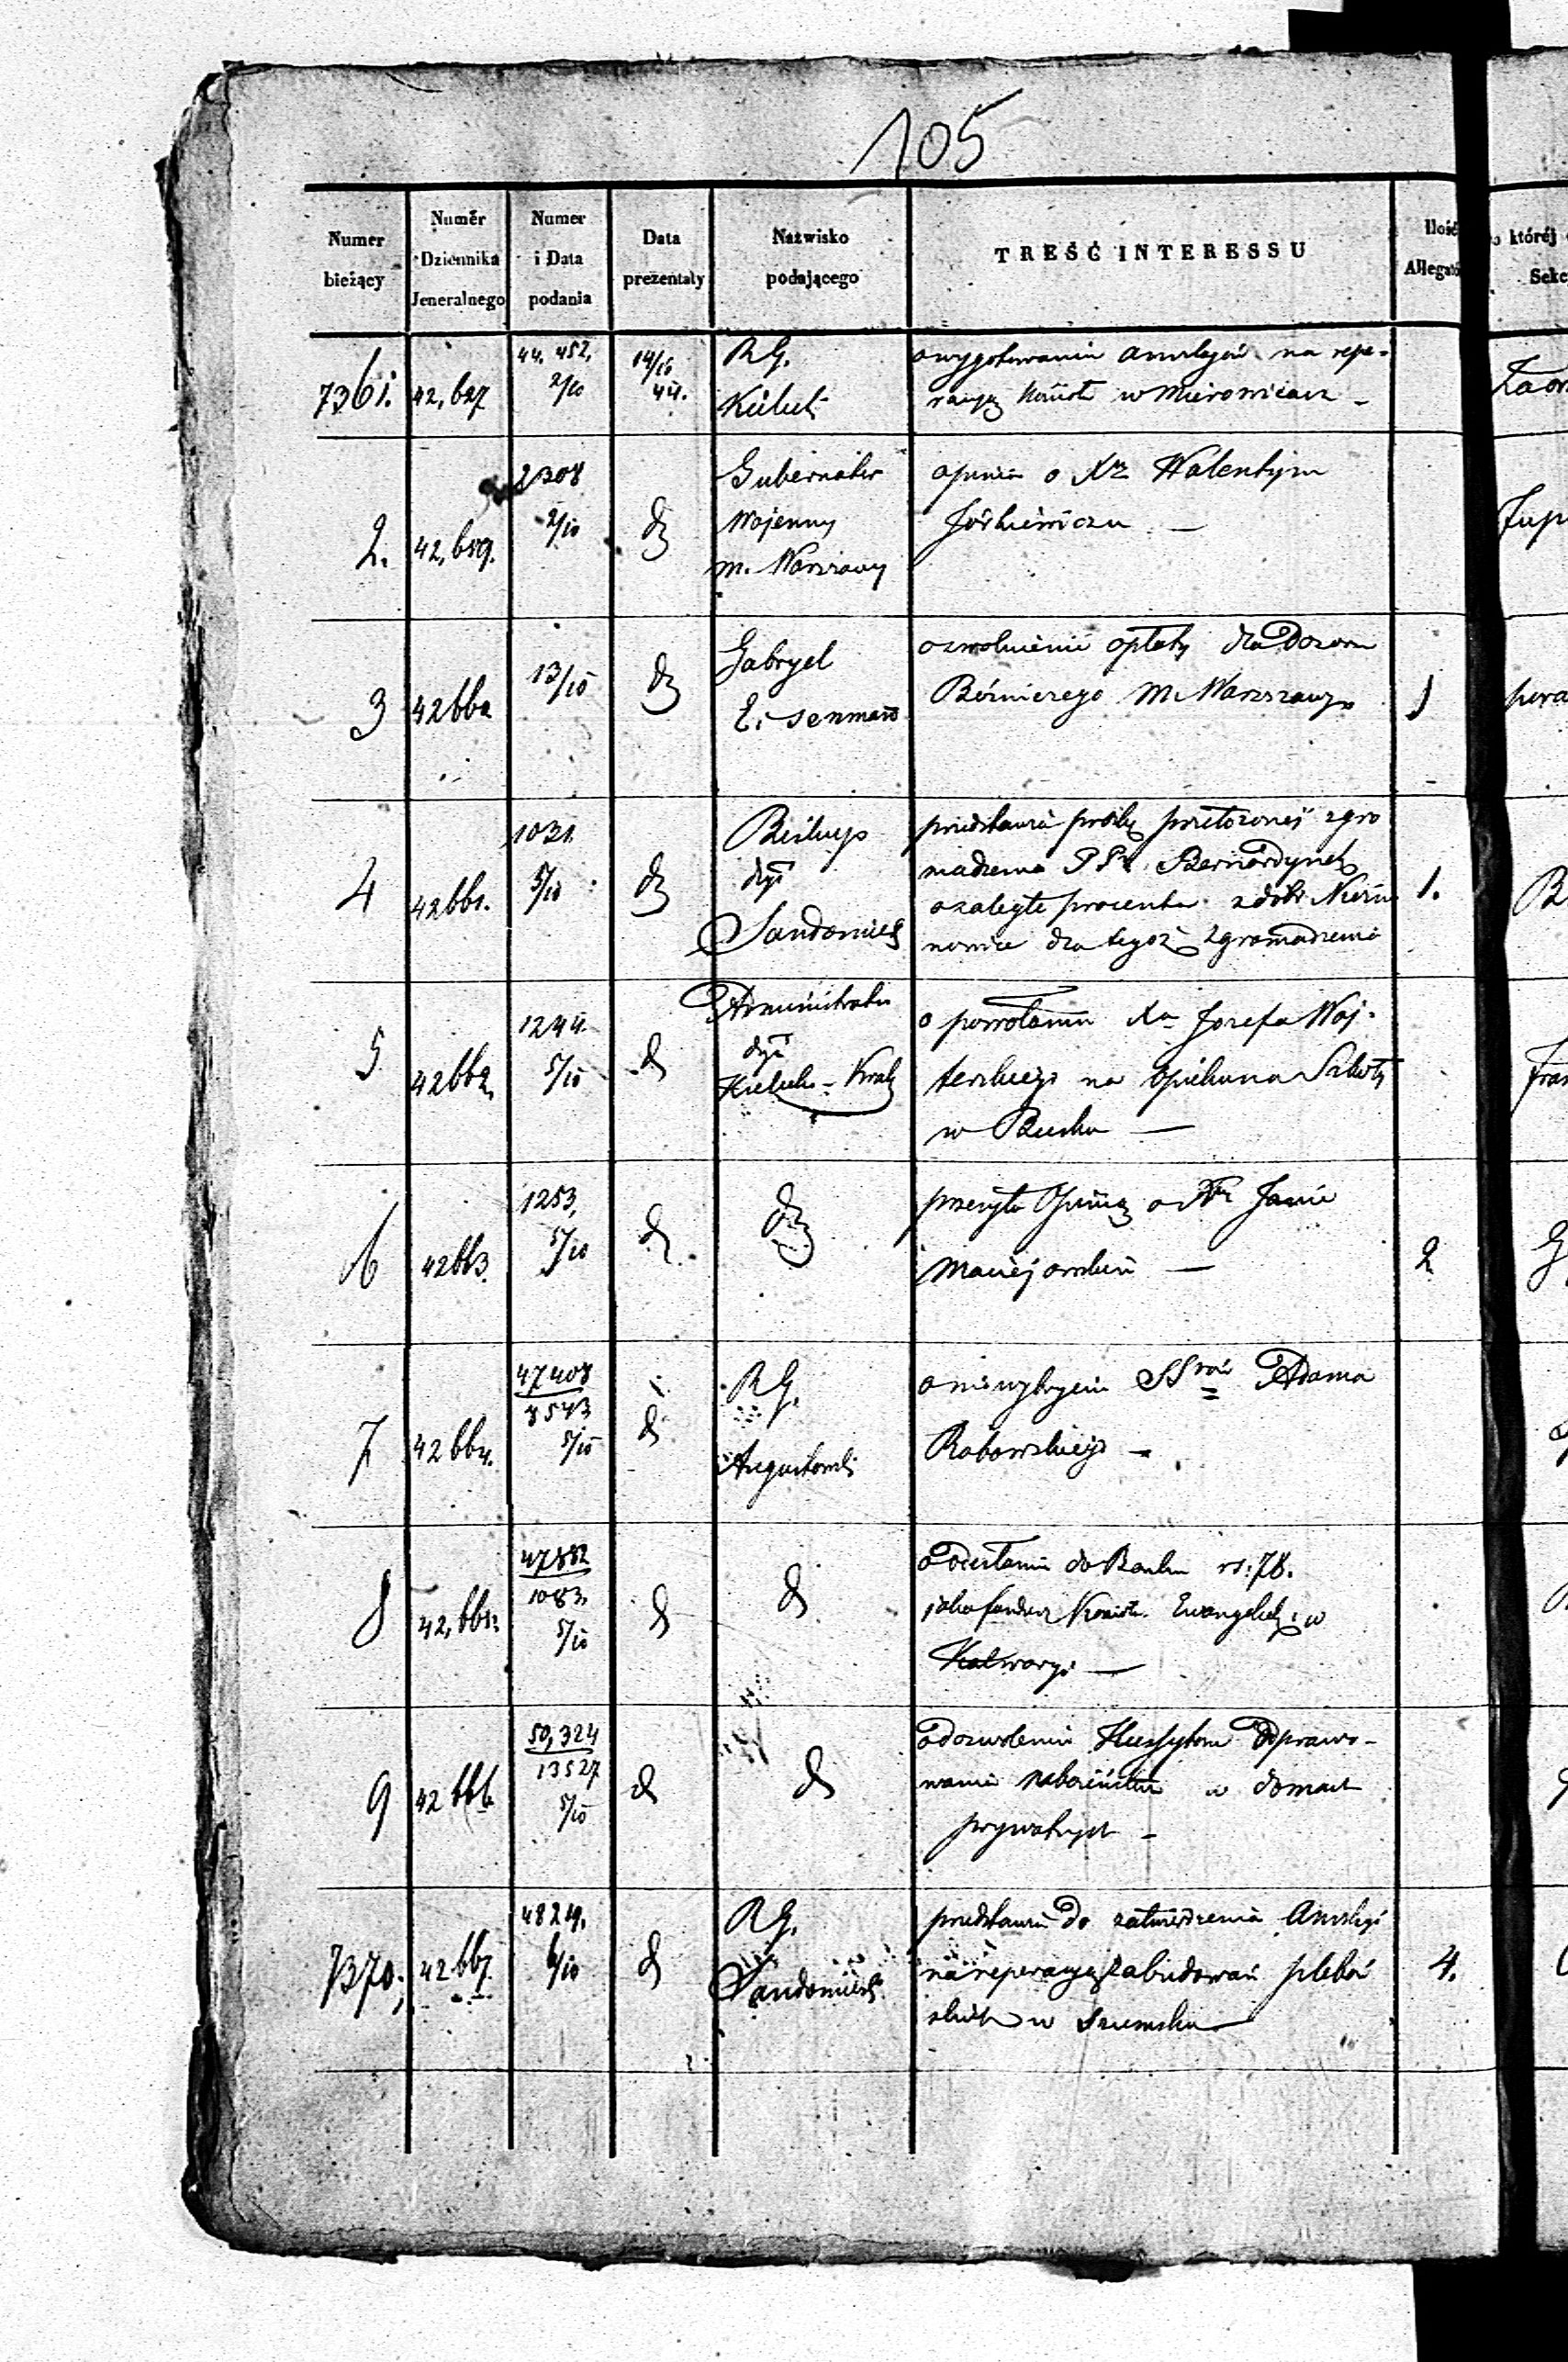 105
Numer bieżący
Numer Dziennika Jeneralnego
Numer i Data podania
Data prezentaty
Nazwisko podającego
TREŚĆ INTERESSU
Ilość Allegató
której
Sekc
7361. 42,627 44.452. 2/10 14/10 44. RG.
o wygotowaniu anszlagów na repe-
w Mierowicach -
2. 42,659. 2308 2/10 Gubernator
Wojenny
m. Warszawy
opinia o Xdz Walentym
3 42660 13/10 Gabryel
Eisenman
o zwolnienie opłaty dla Dozoru
Bóżniczego M. Warszawy
1
4 42661. 1031. 5/10 Biskup
dyi
Sandomier
przedstawia prośbę przełożonej zgro
madzenia PP. Bernardynek
o zaległe procenta z dóbr
dla tegoż Zgromadzenia
1.
5 42662. 1244. 5/10 Administrator
dyi
Kielecko-Krak
o powołaniu Xa Jozefa Woj-
terskiego na Opiekuna Szkoły
w Busku —
6 42663. 1253. 5/10
przesyła Opinią o Xdz Janie
Maciejowskim —
2
7 42664. 47408 8543 5/10 RG.
Augustowski
o niewykryciu SSrów Adama
Rakowskiego -
8 42,665. 47882 1083. 5/10
o odesłaniu do Banku rs: 78.
jako fundusz Kościoła Ewangelick: w
Kalwaryi —
9 42666 50,324 13527 5/10
o dozwoleniu Hussytom odprawo-
wania nabożeństwa w domach
prywatnych -
7370. 42667. 48249. 6/10 RG.
Sandomiers
przedstawia do zatwierdzenia Anszlagi
na reperacyą zabudowań plebań
skich w Szumsku
4.